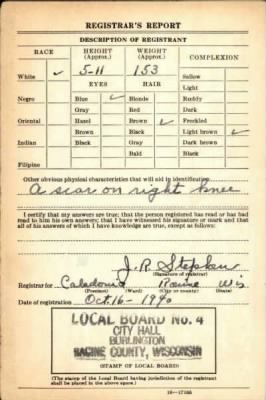 REGISTRAR'S REPORT
DESCRIPTION OF REGISTRANT
RACE HEIGHT (Approx.) WEIGHT (Approx.) COMPLEXION
White ✓ 5-11 153 Sallow
EYES HAIR Light
Negro Blue ✓ Blonde Ruddy
Gray Red Dark
Oriental Hazel Brown ✓ Freckled
Brown Black Light brown ✓
Indian Black Gray Dark brown
Bald Black
Filipino
Other obvious physical characteristics that will aid in identification
A scar on right knee
I certify that my answers are true; that the person registered has read or has had
read to him his own answers; that I have witnessed his signature or mark and that
all of his answers of which I have knowledge are true, except as follows:
J. R. Stephen
(Signature of registrar)
Registrar for Caledonia Racine Wis
(Precinct) (Ward) (City or county) (State)
Date of registration Oct. 16 - 1940
LOCAL BOARD No. 4
CITY HALL
BURLINGTON
RACINE COUNTY, WISCONSIN
(STAMP OF LOCAL BOARD)
(The stamp of the Local Board having jurisdiction of the registrant
shall be placed in the above space.)